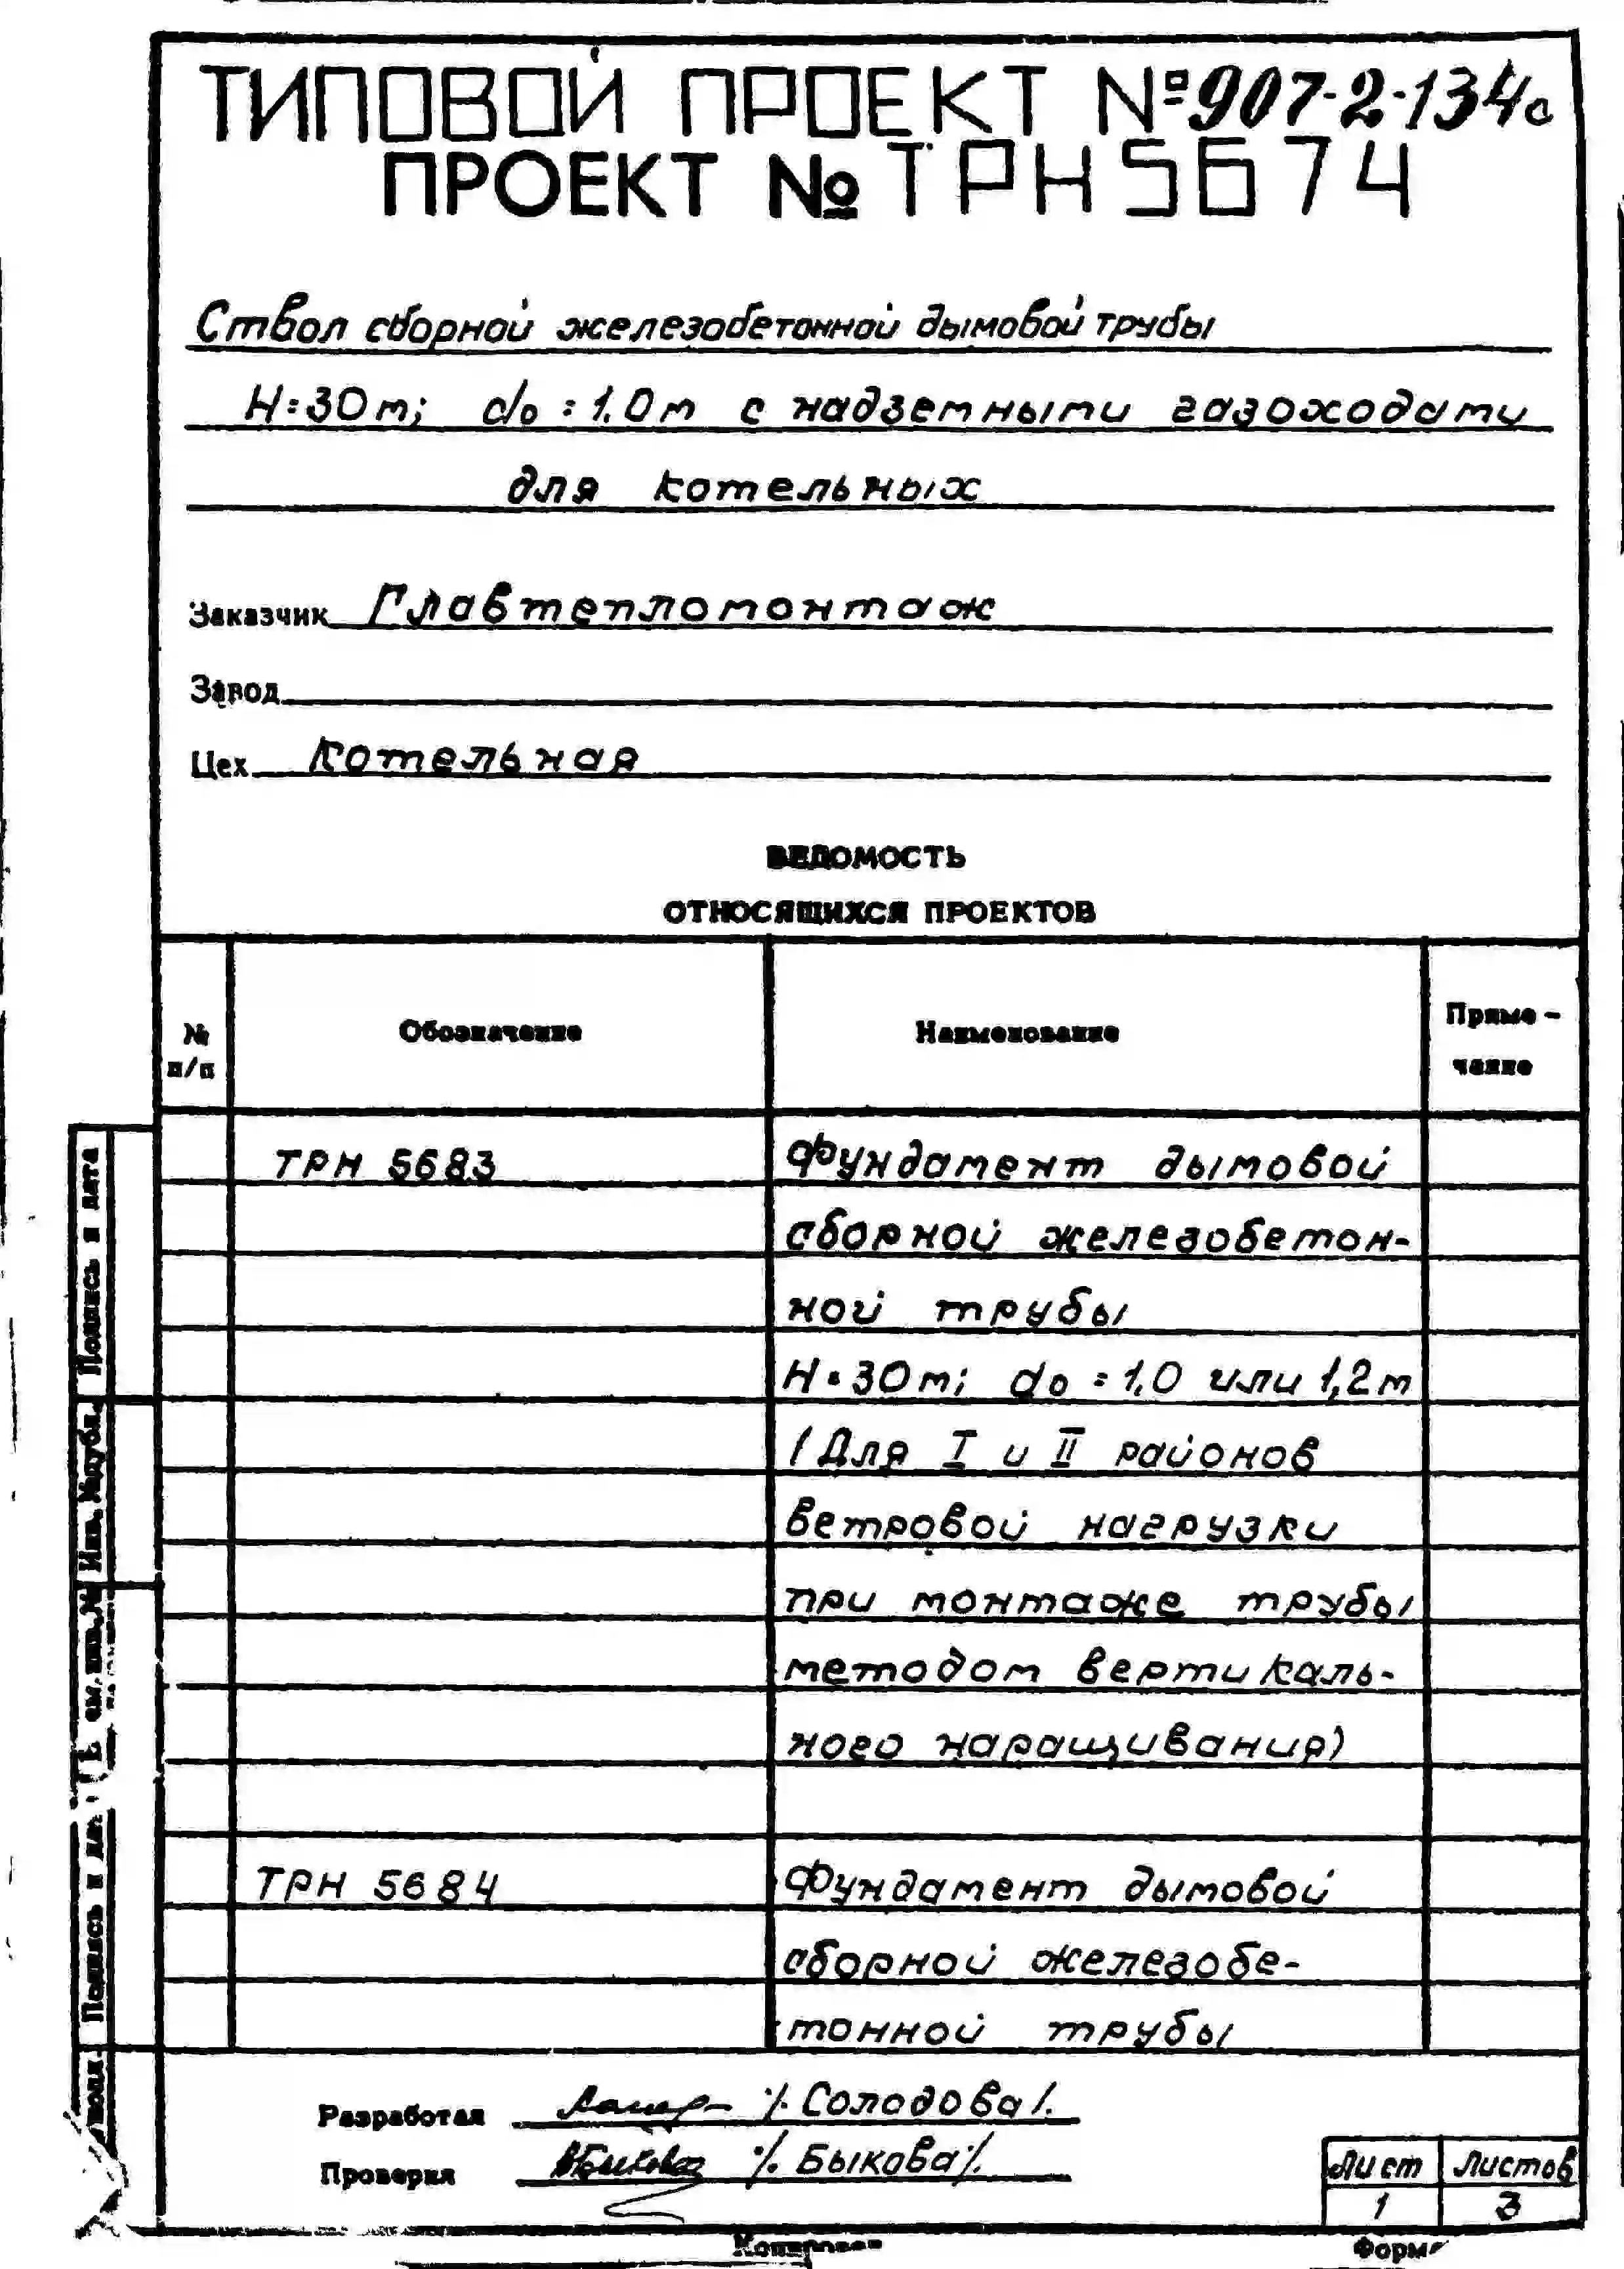 ТИПОВОЙ ПРОЕКТ № 907-2-134с
ПРОЕКТ № ТРН5674
Ствол сборной железобетонной дымовой трубы
Н=30м; d₀=1.0м с надземными газоходами
для котельных
Заказчик Главтепломонтаж
Завод
Цех Котельная
ВЕДОМОСТЬ
ОТНОСЯЩИХСЯ ПРОЕКТОВ
№ п/п Обозначение Наименование Приме-чание
ТРН 5683 Фундамент дымовой
сборной железобетон-
ной трубы
Н=30м; d₀=1,0 или 1,2м
(Для I и II районов
ветровой нагрузки
при монтаже трубы
методом вертикаль-
ного наращивания)
ТРН 5684 Фундамент дымовой
сборной железобе-
тонной трубы
Разработал /Солодова/.
Проверил /Быкова/.
Лист Листов
1 3
Копировал
Подпись и дата
Инв. № дубл.
инв. №
Подпись и дата